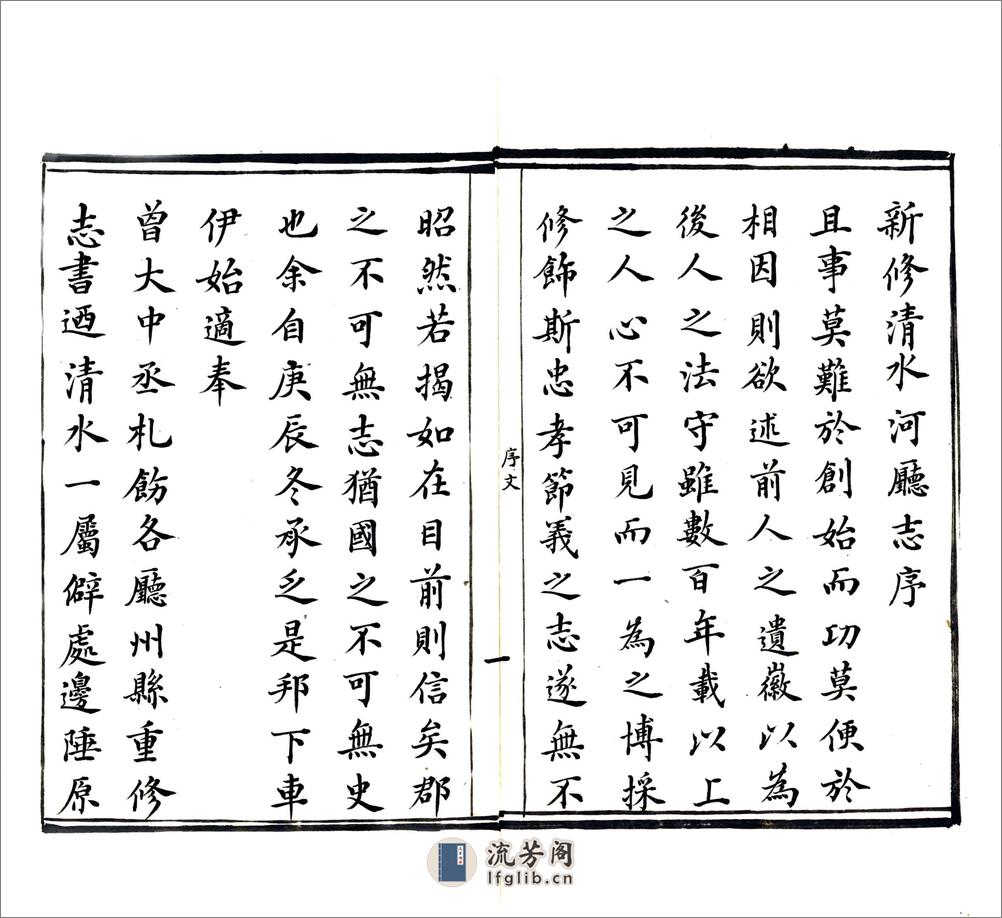 新修清水河廳志序
且事莫難於創始而功莫便於
相因則欲述前人之遺徽以為
後人之法守雖數百年載以上
之人心不可見而一為之博採
修飾斯忠孝節義之志遂無不
序文
一
昭然若揭如在目前則信矣郡
之不可無志猶國之不可無史
也余自庚辰冬承乏是邦下車
伊始適奉
曾大中丞札飭各廳州縣重修
志書迺清水一屬僻處邊陲原
流芳阁
lfglib.cn